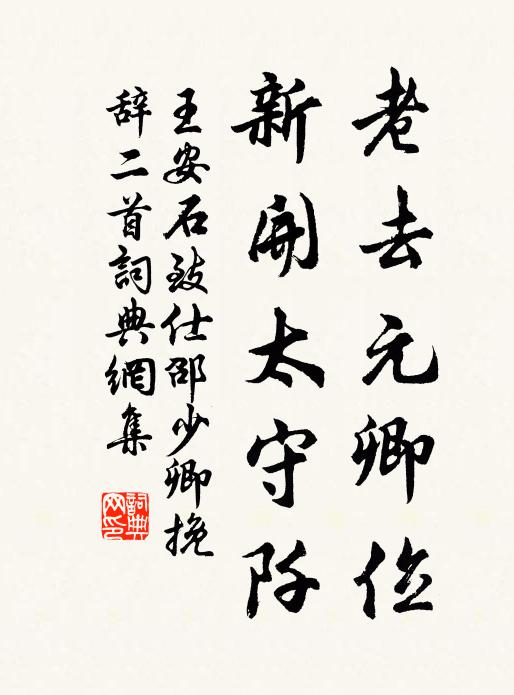 老去元卿径
新開太守阡
王安石致仕邵少卿挽
辞二首詞典網集
詞典
网印